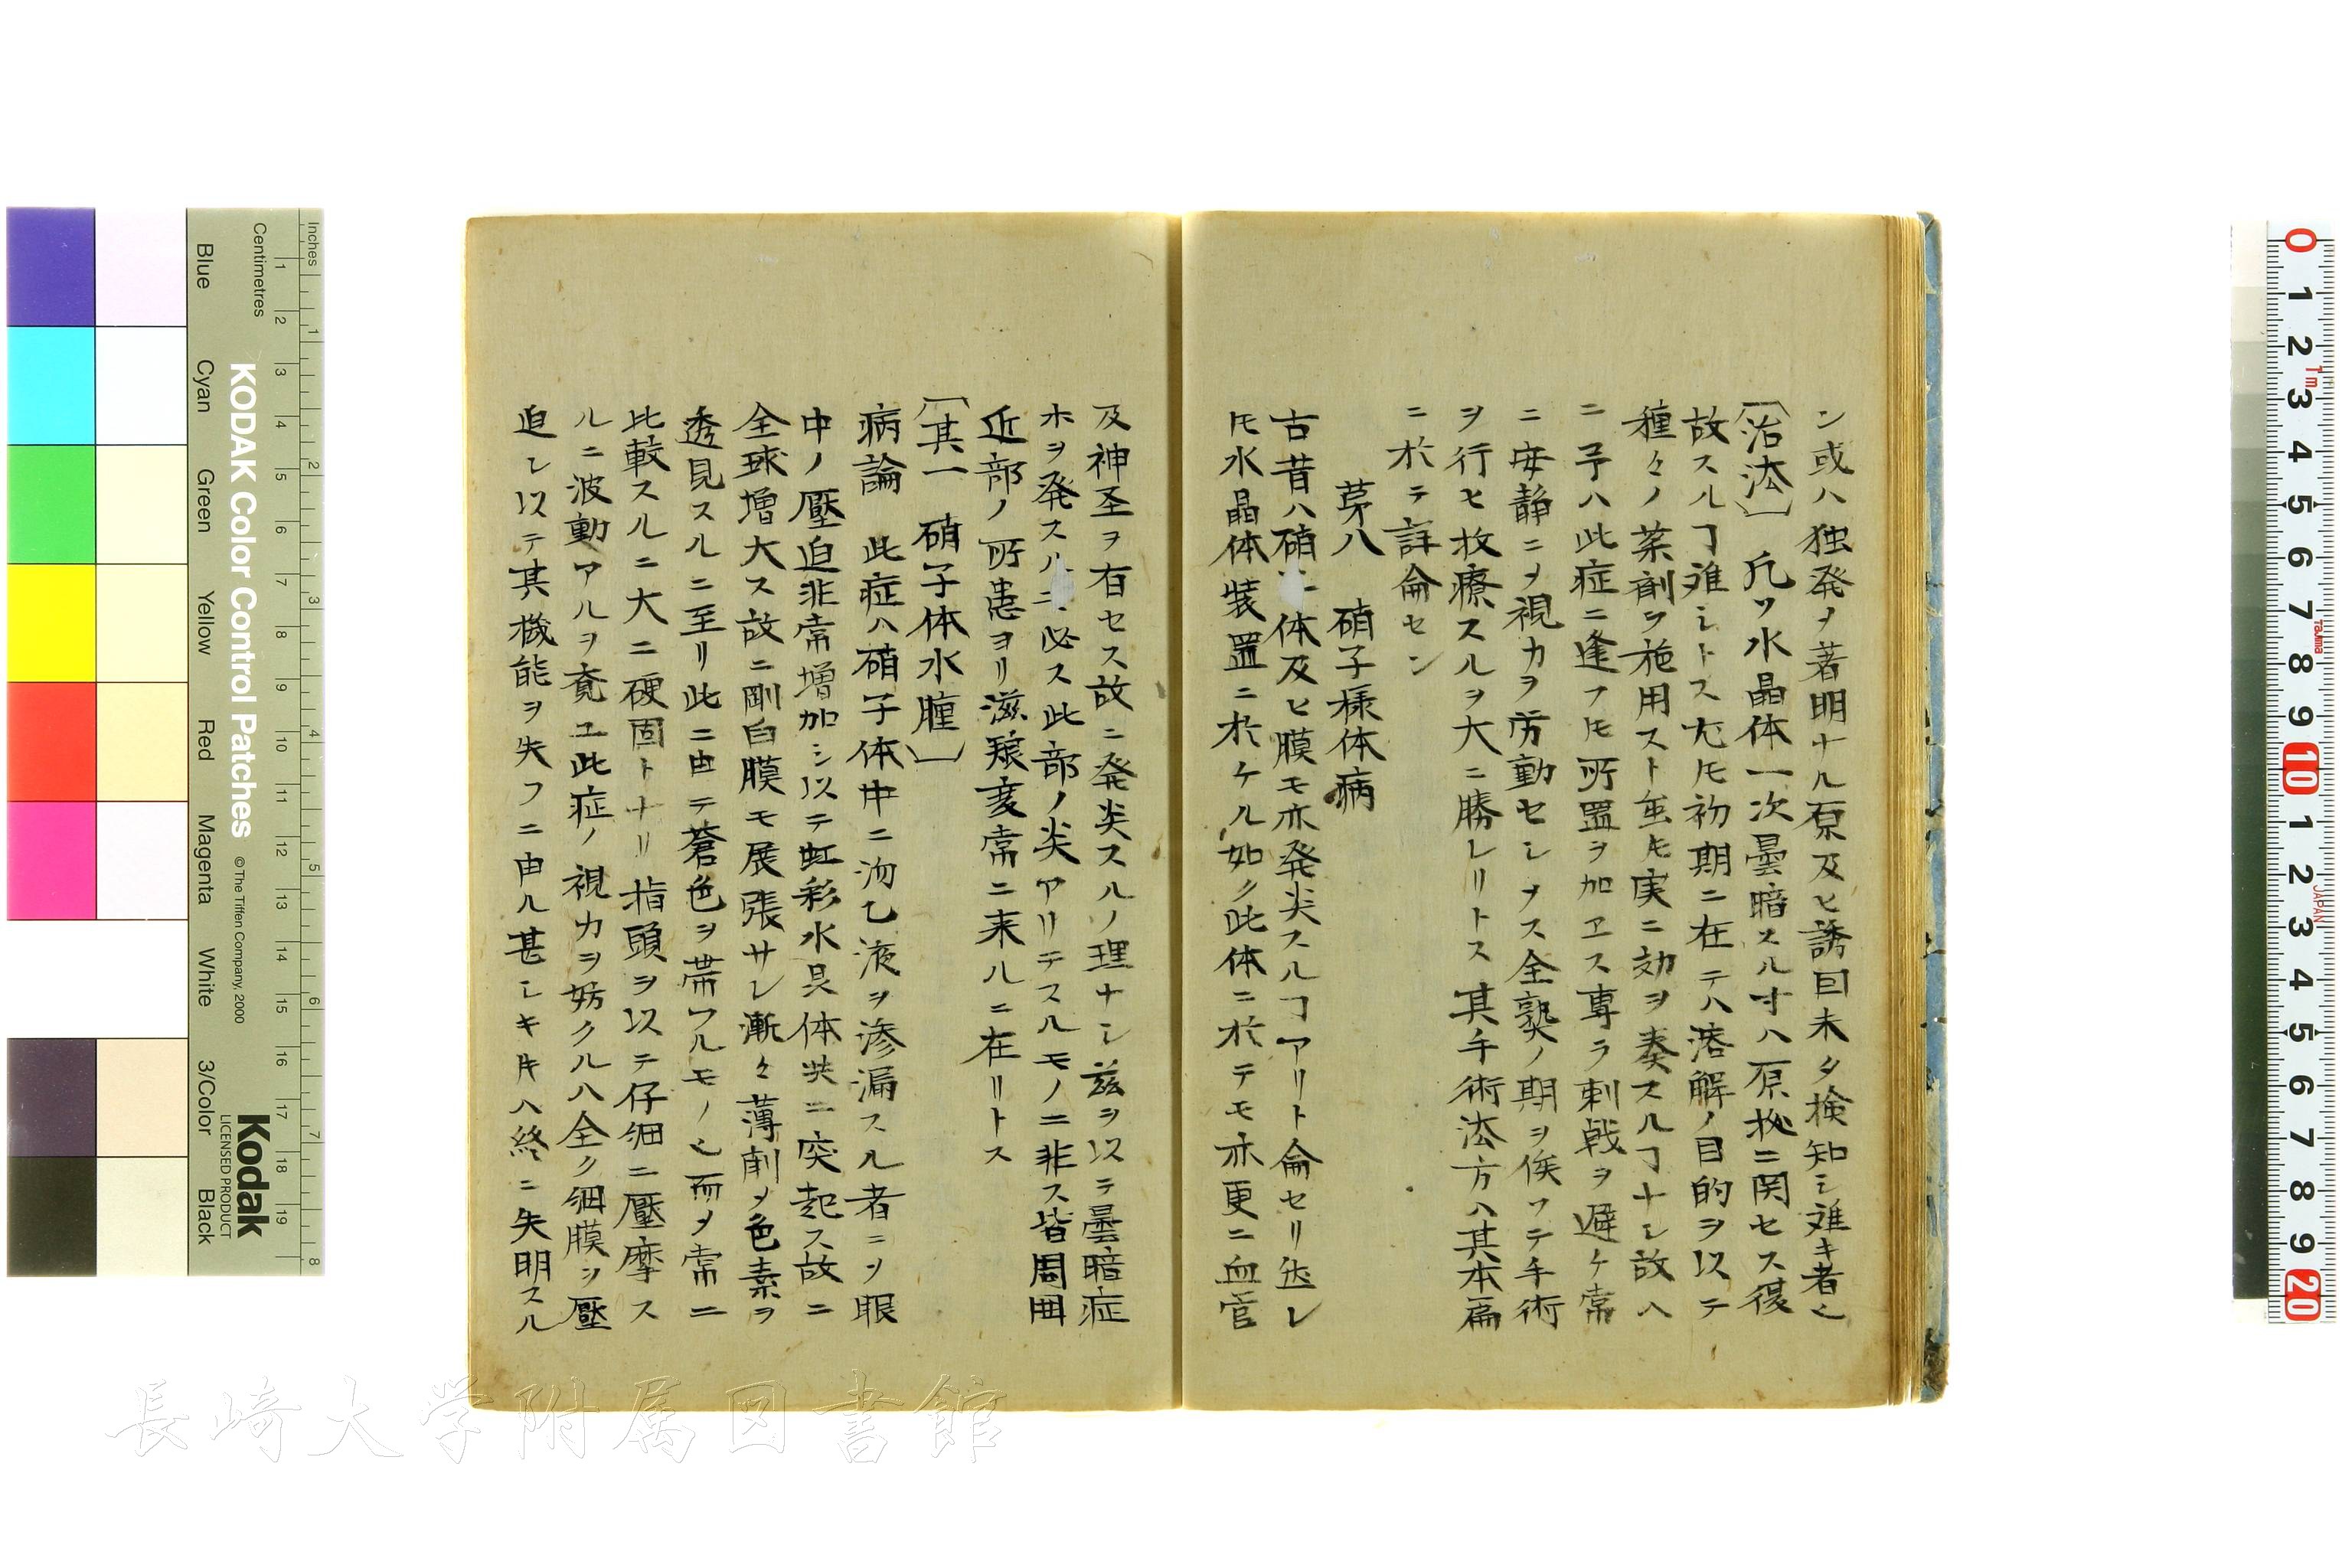 ン或ハ独発ノ著明ナル原及ヒ誘因未タ検知シ難キ者也
〔治法〕 凡ソ水晶体一次曇暗スル寸ハ原拠ニ関セス復
故スルヿ難シトス尤モ初期ニ在テハ溶解ノ目的ヲ以テ
種々ノ薬剤ヲ施用スト虽𪜈実ニ効ヲ奏スルヿナシ故ハ
ニ予ハ此症ニ逢フ𪜈所置ヲ加ヱス専ラ刺戟ヲ避ケ常
ニ安静ニヲ視力ヲ労動セシメス全熟ノ期ヲ俟ツテ手術
ヲ行ヒ救療スルヲ大ニ勝レリトス其手術法方ハ其本扁
ニ於テ詳侖セン
苐八 硝子様体病
古昔ハ硝 体及ヒ膜モ亦発炎スルヿアリト侖セリ然レ
𪜈水晶体装置ニ於ケル如ク此体ニ於テモ亦更ニ血管
及神圣ヲ有セス故ニ発炎スルノ理ナシ茲ヲ以テ曇暗症
ホヲ発スルニ必ス此部ノ炎アリテスルモノニ非ス皆周囲
近部ノ所患ヨリ滋飬変常ニ来ルニ在リトス
〔其一 硝子体水腫〕
病論 此症ハ硝子体中ニ沕乙液ヲ滲漏スル者ニヲ眼
中ノ壓迫非常増加シ以テ虹彩水晶体共ニ突起ス故ニ
全球増大ス故ニ剛白膜モ展張サレ漸々薄削メ色素ヲ
透見スルニ至リ此ニ由テ蒼色ヲ帯フルモノ也而メ常ニ
比較スルニ大ニ硬固トナリ指頭ヲ以テ仔細ニ壓摩ス
ルニ波動アルヲ覚ユ此症ノ視力ヲ妨クルハ全ク細膜ヲ壓
迫シ以テ其機能ヲ失フニ由ル甚シキ𪜈ハ終ニ失明スル
Inches
Centimetres
KODAK Color Control Patches
© The Tiffen Company, 2000
Kodak
LICENSED PRODUCT
Blue
Cyan
Green
Yellow
Red
Magenta
White
3/Color
Black
1 2 3 4 5 6 7 8 9 10 11 12 13 14 15 16 17 18 19
1 2 3 4 5 6 7 8
0 1 2 3 4 5 6 7 8 9 10 1 2 3 4 5 6 7 8 9 20
1m
Tajima
JAPAN
長崎大学附属図書館